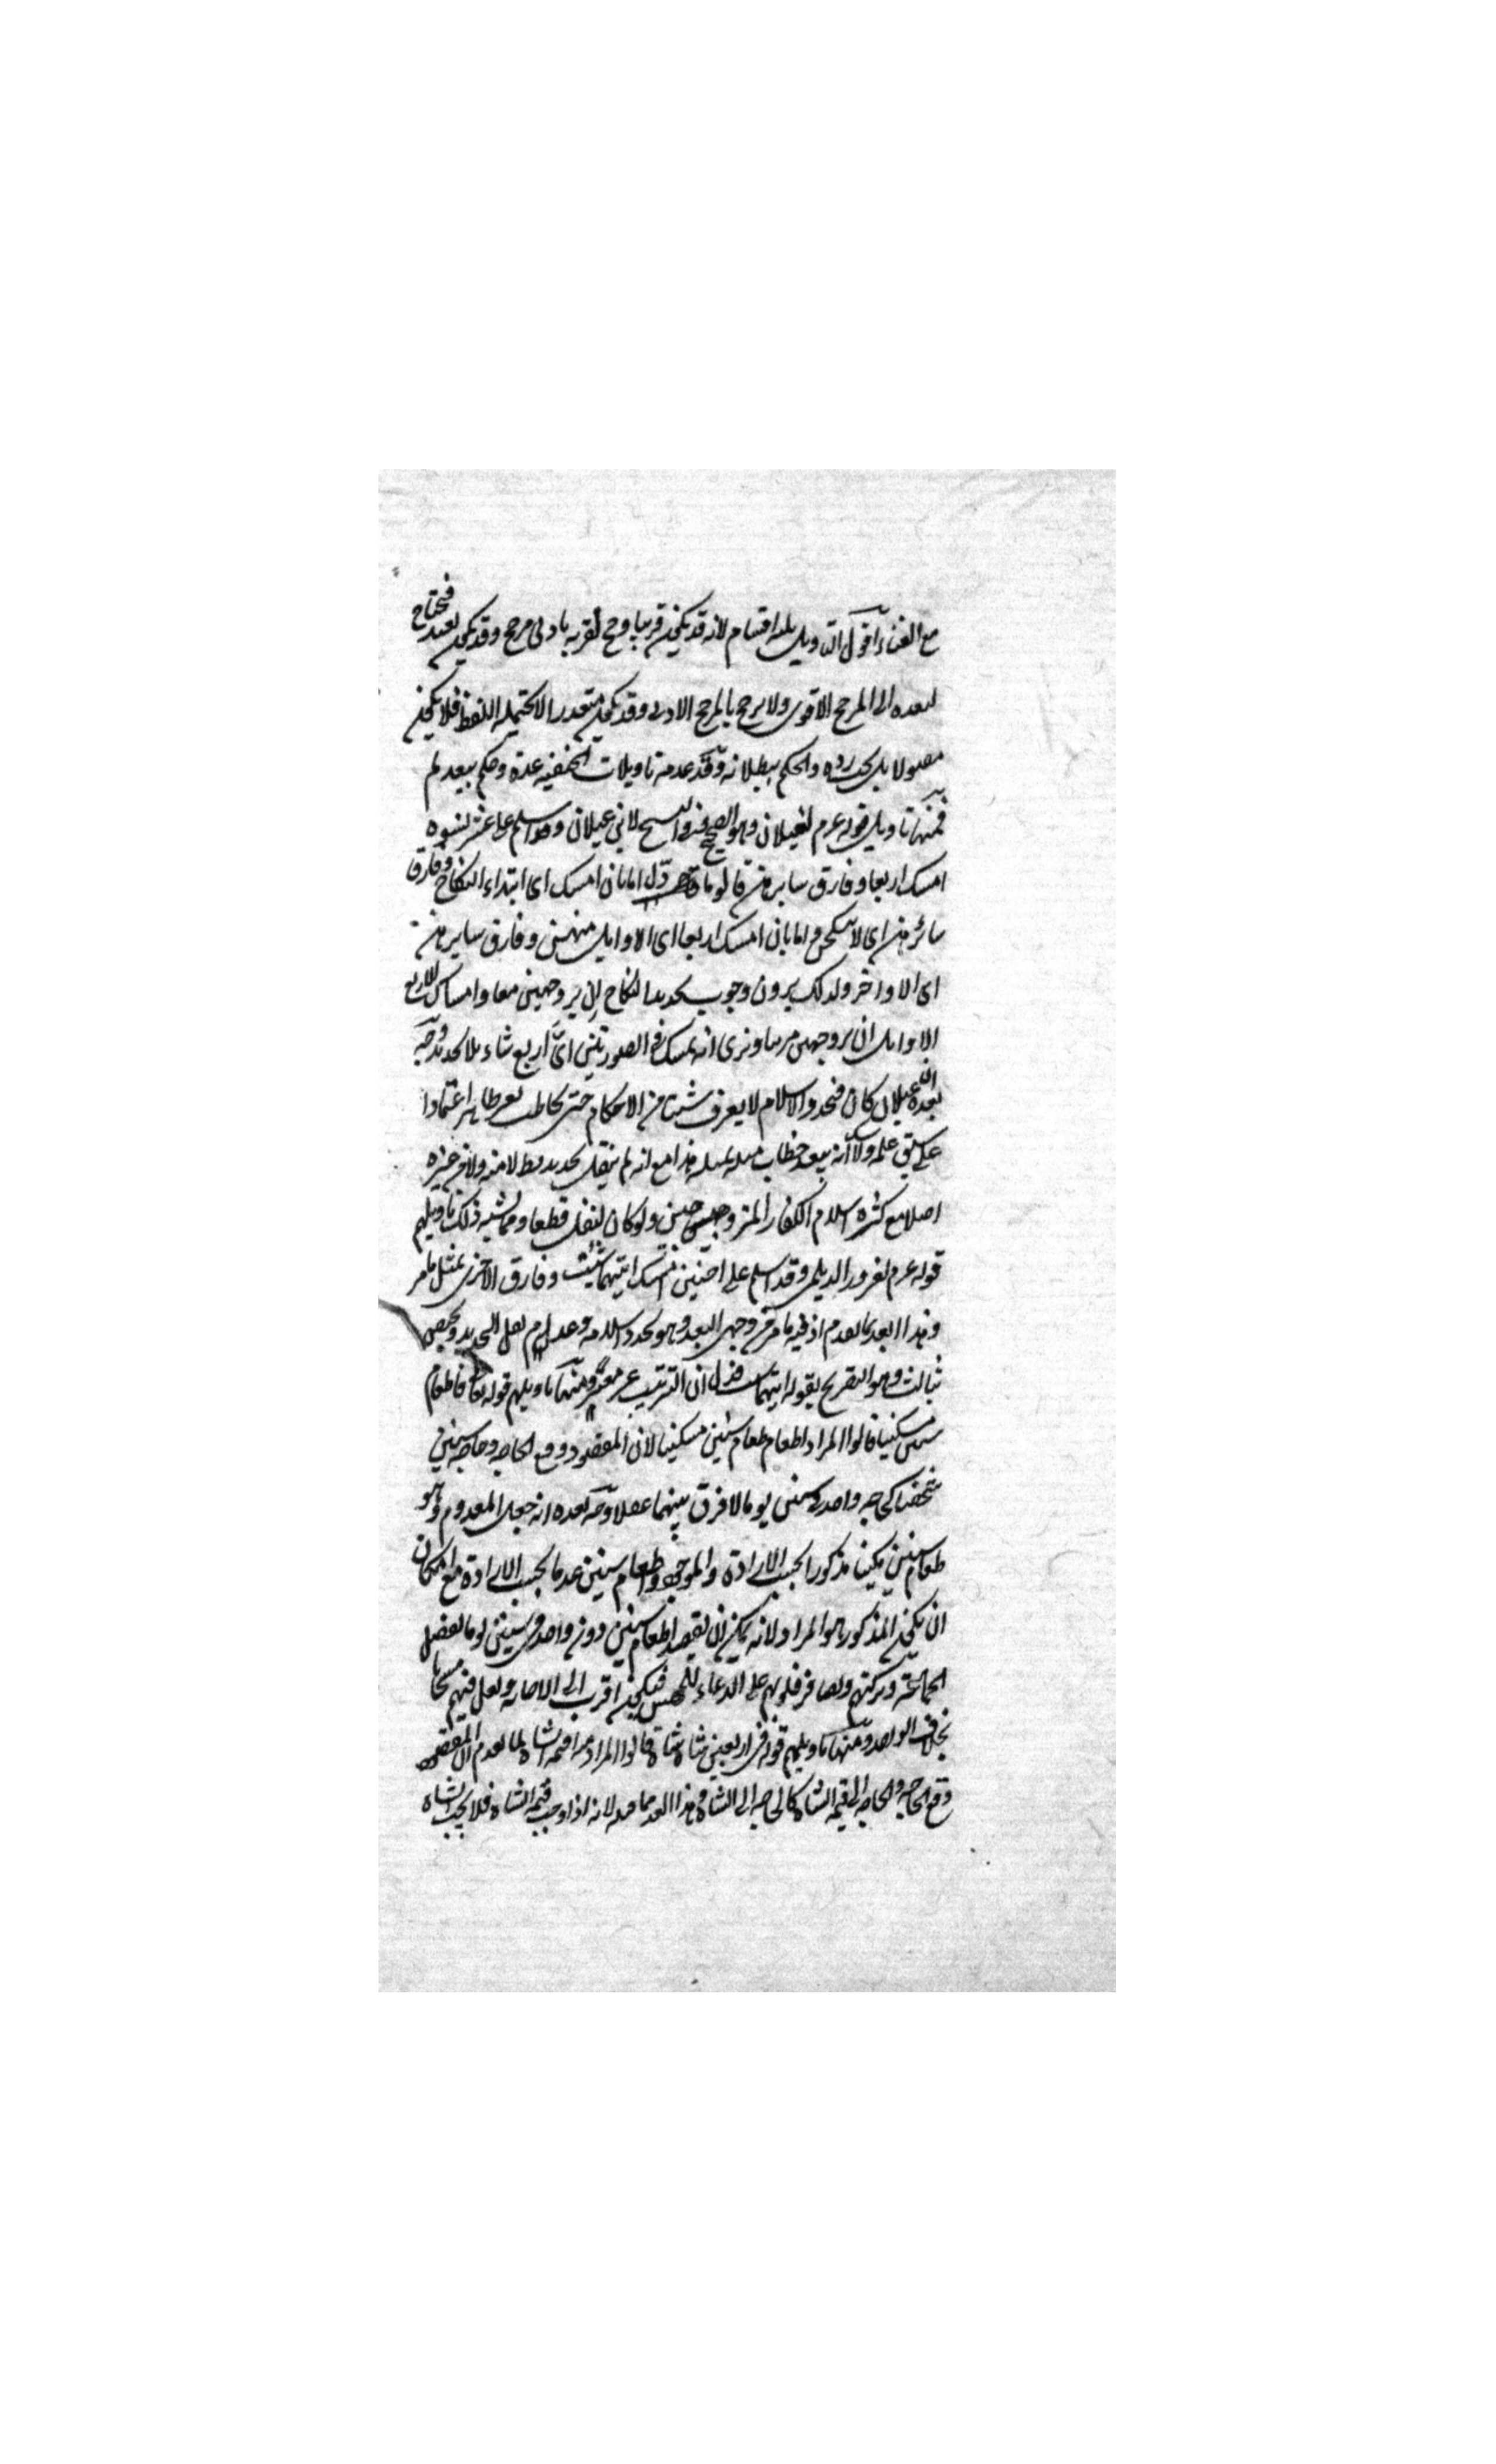 مع الغناء اقول التاويل ثلثة اقسام لانه قد يكون قريبا وح لقربه بادنى مرجح وقد يكون بعيدا فيحتاج
لبعده الى المرجح الاقوى ولا يرجح بالمرجح الادنى وقد يكون متعذرا لا يحتمله اللفظ فلا يكون
مقبولا بل يجب رده والحكم ببطلانه وقد عد من تاويلات الحنفيه عدة وحكم ببعدها
فمنها تاويل قوله عم لغيلان وهو الصحيح وفى النسخ لابن عيلان وقد اسلم على عشر نسوه
امسك اربعا وفارق سايرهن قالوا ما اول اما بان امسك اى ابتداء النكاح وفارق
سائرهن اى لا تنكحهن واما بان امسك اربعا اى الاوايل منهن وفارق سايرهن
اى الاواخر ولذلك يرون وجوب تجديد النكاح ان تزوجهن معا وامساك الاربع
الاوايل ان تزوجهن مرتبا ونرى انه يمسك فى الصورتين اى اربع شاء بلا تجديد وجه
بعده ان عيلان كان متجدد الاسلام لا يعرف شيئا من الاحكام حتى يخاطب بغير ظاهر اعتمادا
على سبق علمه ولا شك انه يبعد خطاب مثله بمثله هذا مع انه لم ينقل تجديد قط لا منه ولا من غيره
اصلا مع كثرة اسلام الكفار المتزوجين ولو كان لنقل قطعا ومما يشبه ذلك تاويلهم
قوله عم لفيروز الديلمى وقد اسلم على اختين امسك ايتهما شئت وفارق الاخرى بمثل ما مر
وهذا ابعد مما تقدم اذ فيه ما مر من وجهى البعد وهو تجدد اسلامه وعدم نقل التجديد ويختص
بثالث وهو التصريح بقوله ايتهما شئت فدل ان الترتيب غير معتبر ومنها تاويلهم قوله تعالى فاطعام
ستين مسكينا قالوا المراد اطعام طعام ستين مسكينا لان المقصود دفع الحاجه وحاجه ستين
شخصا كحاجه واحد فى ستين يوما لا فرق بينهما عقلا وجه بعده انه جعل المعدوم وهو
طعام ستين مسكينا مذكورا بحسب الارادة والموجود وهو اطعام ستين عدما بحسب الارادة مع امكان
ان يكون المذكور هو المراد لانه يمكن ان يقصد اطعام ستين دون واحد فى ستين يوما لفضل
الجماعة وبركتهم وتضافر قلوبهم على الدعاء للمحسن فيكون اقرب الى الاجابه ولعل فيهم مستجابا
بخلاف الواحد ومنها تاويلهم قوله فى اربعين شاة شاة قالوا المراد قيمة الشاة لما تقدم ان المقصود
دفع الحاجه والحاجه الى قيمه الشاة كالحاجه الى الشاة وهذا ابعد مما قبله لانه اذا وجب قيمه الشاة فلا يجب الشاه